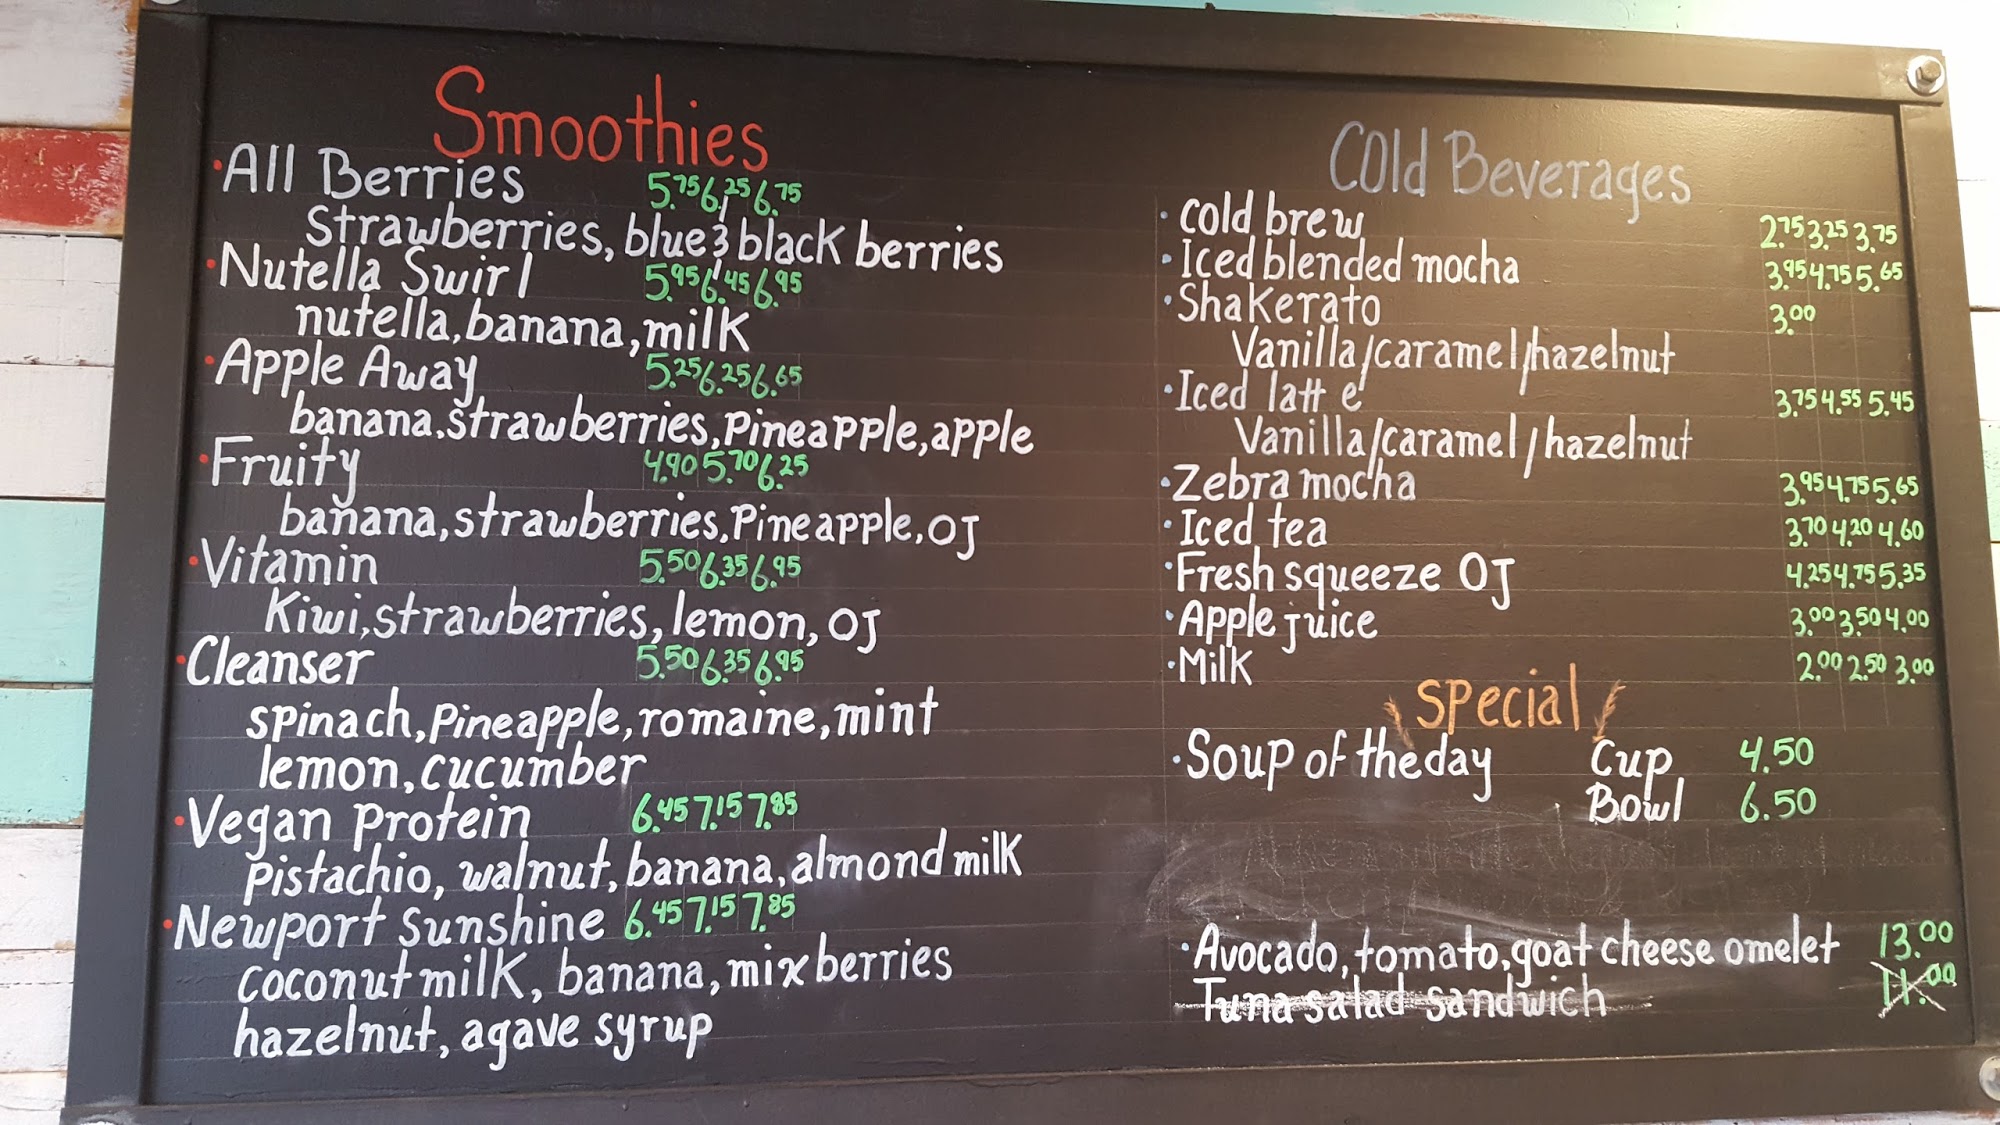 Smoothies
All Berries 5.75 6.25 6.75
strawberries, blue & black berries
Nutella Swirl 5.95 6.45 6.95
nutella, banana, milk
Apple Away 5.25 6.25 6.65
banana, strawberries, pineapple, apple
Fruity 4.90 5.70 6.25
banana, strawberries, pineapple, OJ
Vitamin 5.50 6.35 6.95
Kiwi, strawberries, lemon, OJ
Cleanser 5.50 6.35 6.95
spinach, pineapple, romaine, mint
lemon, cucumber
Vegan protein 6.45 7.15 7.85
pistachio, walnut, banana, almond milk
Newport sunshine 6.45 7.15 7.85
coconut milk, banana, mix berries
hazelnut, agave syrup
Cold Beverages
cold brew 2.75 3.25 3.75
Iced blended mocha 3.95 4.75 5.65
Shakerato 3.00
Vanilla/caramel/hazelnut
Iced latte 3.75 4.55 5.45
Vanilla/caramel/hazelnut
Zebra mocha 3.95 4.75 5.65
Iced tea 3.70 4.20 4.60
Fresh squeeze OJ 4.25 4.75 5.35
Apple juice 3.00 3.50 4.00
Milk 2.00 2.50 3.00
special
Soup of the day Cup 4.50
Bowl 6.50
Avocado, tomato, goat cheese omelet 13.00
Tuna salad sandwich 11.00